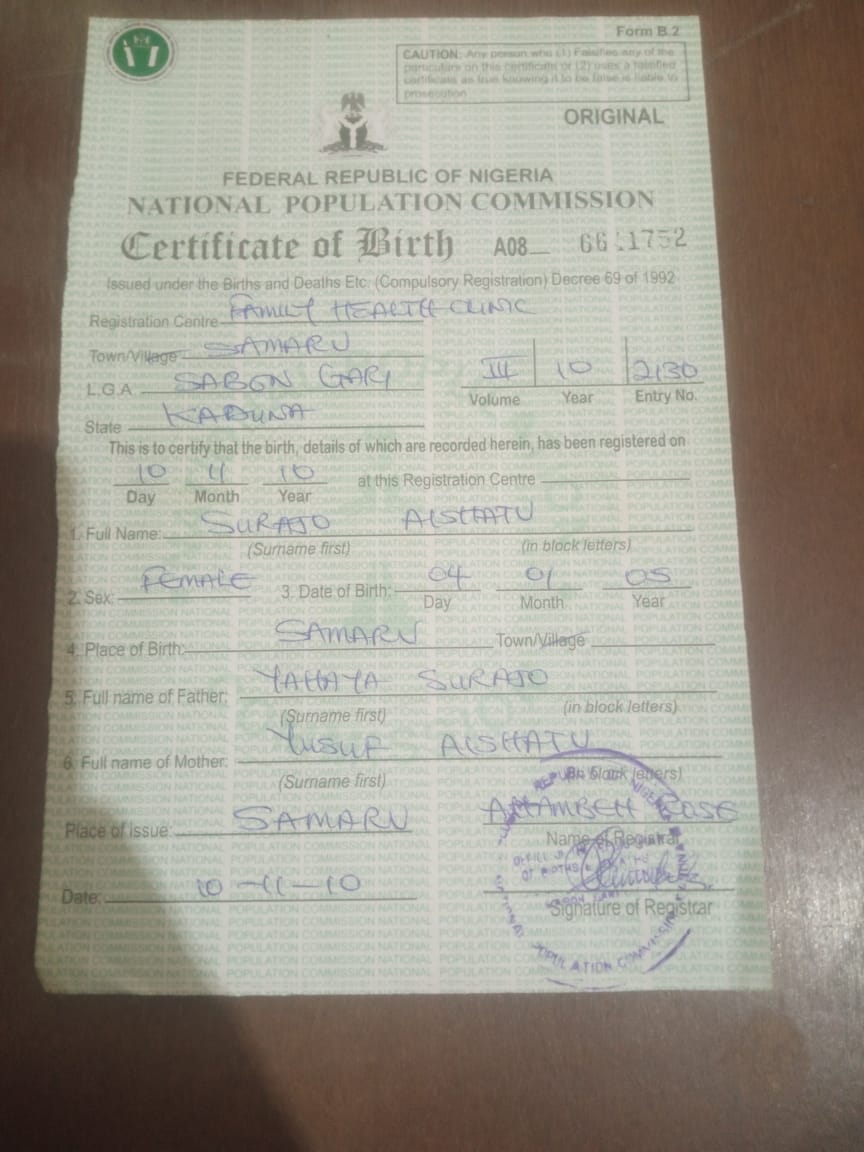 Form B.2
CAUTION: Any person who (1) Falsifies any of the
particulars on this certificate or (2) uses a falsified
certificate as true knowing it to be false is liable to
prosecution
ORIGINAL
FEDERAL REPUBLIC OF NIGERIA
NATIONAL POPULATION COMMISSION
Certificate of Birth A08
Issued under the Births and Deaths Etc. (Compulsory Registration) Decree 69 of 1992
Registration Centre FAMILY HEALTH CLINIC
Town/Village SAMARU
L.G.A SABON GARI III 10 2130
Volume Year Entry No.
State KADUNA
This is to certify that the birth, details of which are recorded herein, has been registered on
10 11 10 at this Registration Centre
Day Month Year
1. Full Name: SURAJO AISHATU
(Surname first) (in block letters)
2. Sex: FEMALE 3. Date of Birth: 04 01 05
Day Month Year
4. Place of Birth: SAMARU Town/Village
5. Full name of Father: YAHAYA SURAJO
(Surname first) (in block letters)
6. Full name of Mother: YUSUF AISHATU
(Surname first) (in block letters)
Place of issue: SAMARU ROSE
Name of Registrar
Date: 10-11-10
Signature of Registrar
NATIONAL POPULATION COMMISSION